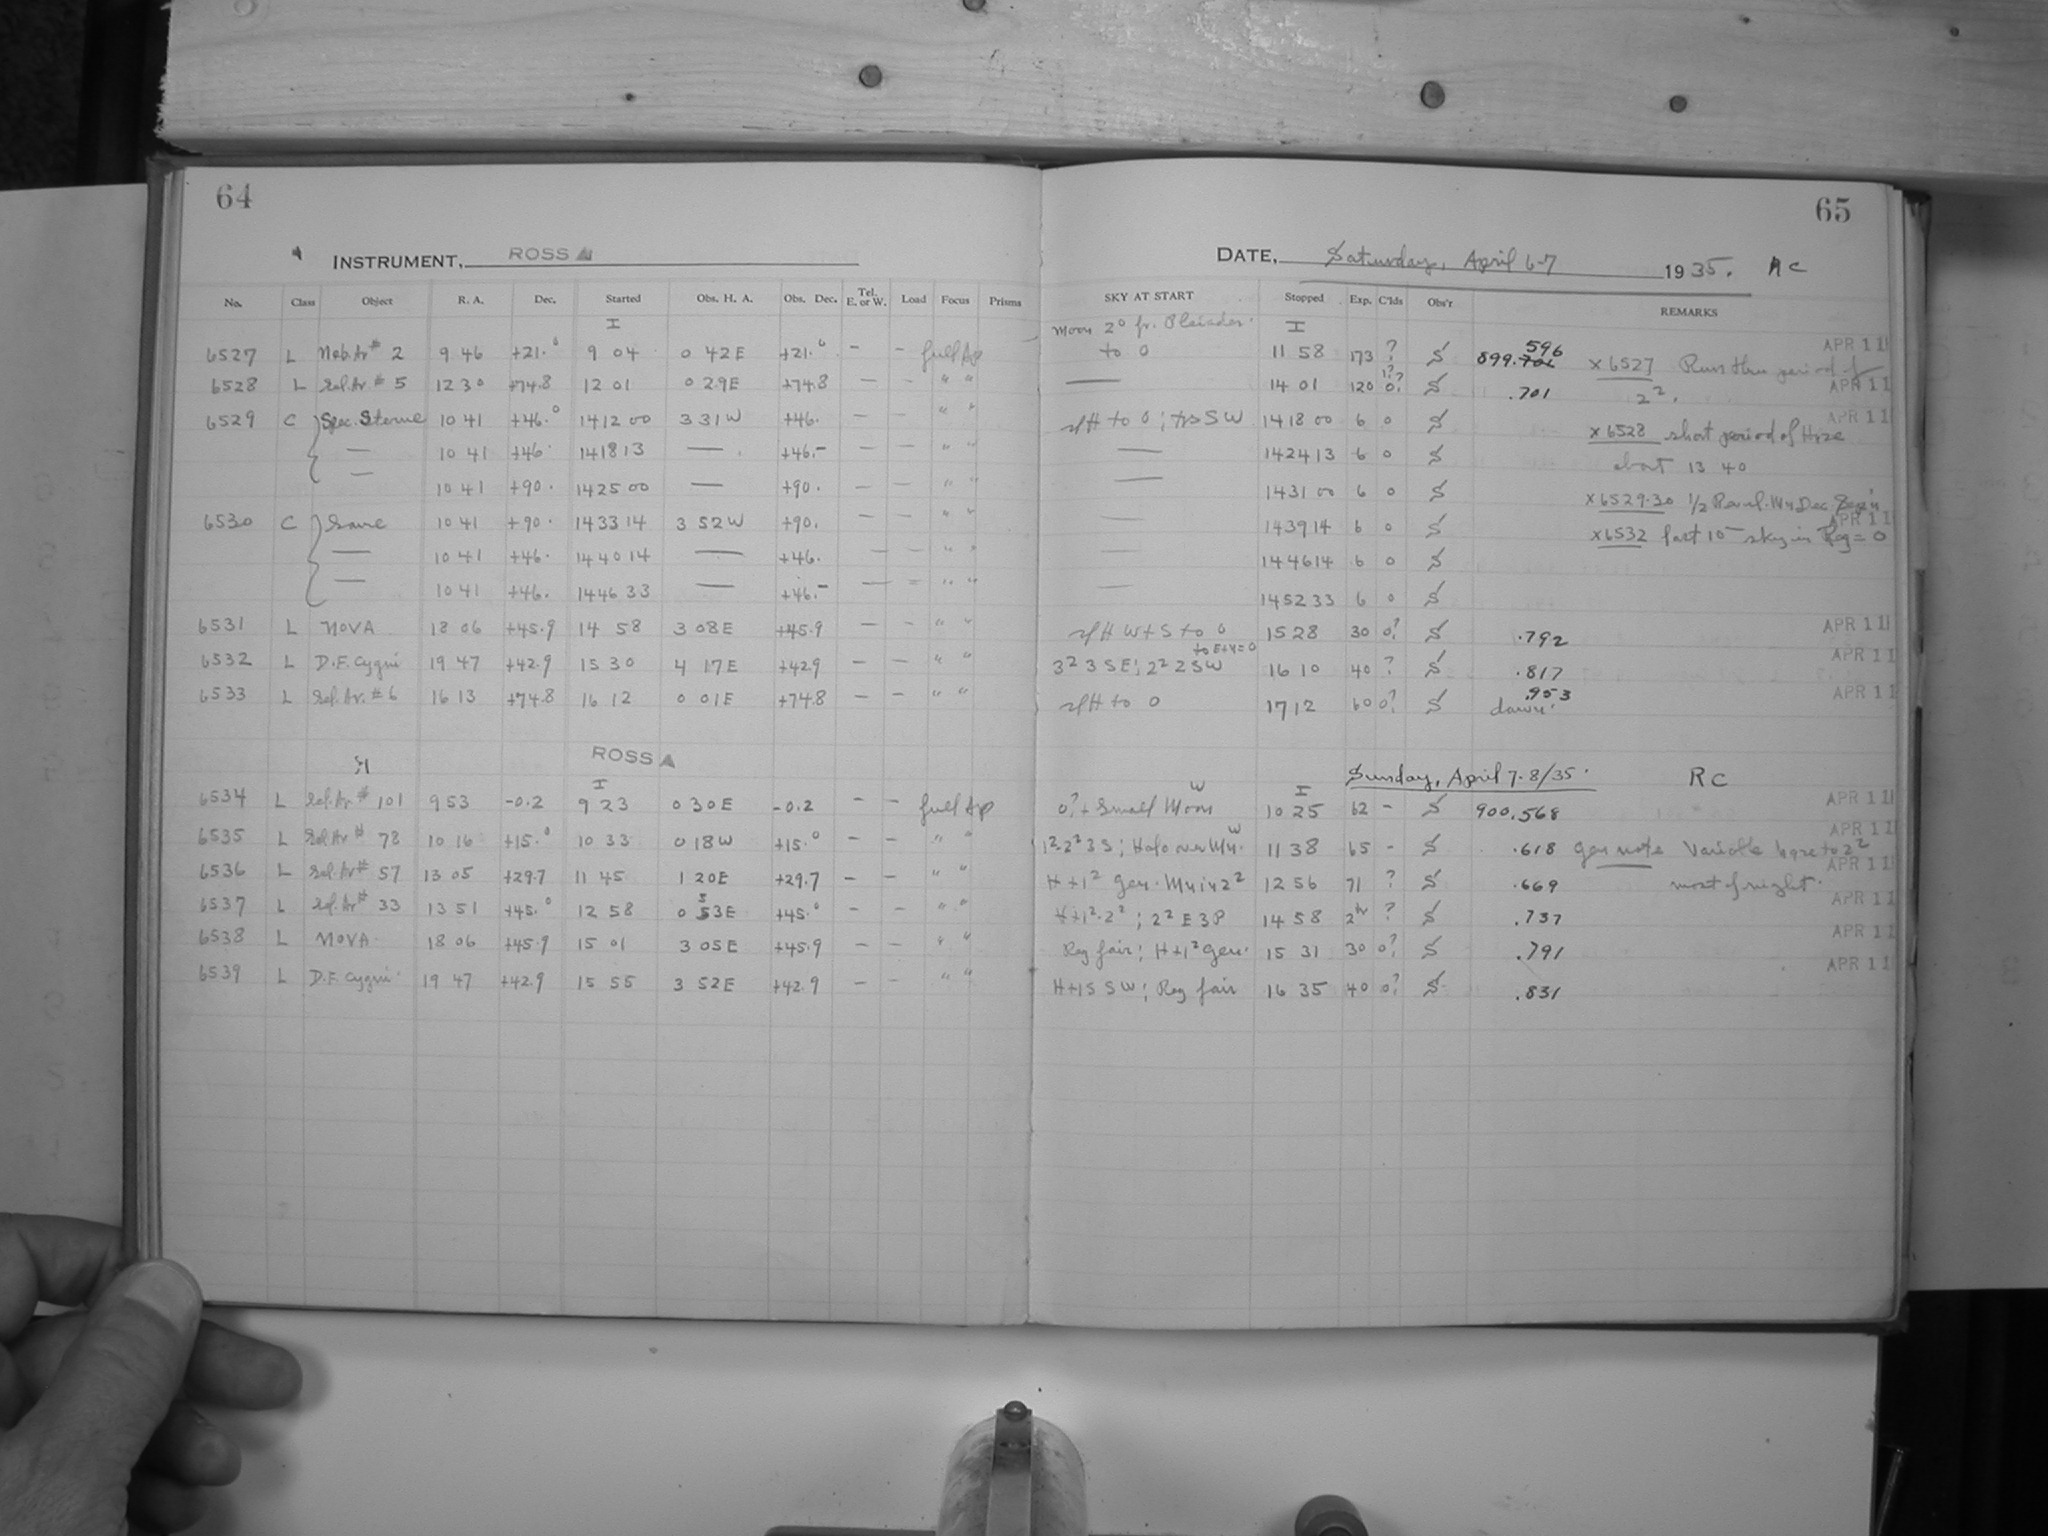 64
INSTRUMENT, ROSS A
No. Class Object R. A. Dec. Started Obs. H. A. Obs. Dec. Tel. E. or W. Load Focus Prisms
I
6527 L Neb. Ar # 2 9 46 +21.0 9 04 0 42 E +21.0 — — full Ap
6528 L Sel. Ar. # 5 12 30 +74.8 12 01 0 29 E +74.8 — — " "
6529 C Spec. Sterne 10 41 +46.0 14 12 00 3 31 W +46. — — " "
— 10 41 +46. 14 18 13 — +46. — — " "
— 10 41 +90. 14 25 00 — +90. — — " "
6530 C Same 10 41 +90. 14 33 14 3 52 W +90. — — " "
— 10 41 +46. 14 40 14 — +46. — — " "
— 10 41 +46. 14 46 33 — +46. — — " "
6531 L NOVA 18 06 +45.9 14 58 3 08 E +45.9 — — " "
6532 L D.F. Cygni 19 47 +42.9 15 30 4 17 E +42.9 — — " "
6533 L Sel. Ar. # 6 16 13 +74.8 16 12 0 01 E +74.8 — — " "
ROSS A
I
6534 L Sel. Ar # 101 9 53 -0.2 9 23 0 30 E -0.2 — — full Ap
6535 L Sel. Ar # 78 10 16 +15.0 10 33 0 18 W +15.0 — — " "
6536 L Sel. Ar # 57 13 05 +29.7 11 45 1 20 E +29.7 — — " "
6537 L Sel. Ar # 33 13 51 +45.0 12 58 0 53 E +45.0 — — " "
6538 L NOVA 18 06 +45.9 15 01 3 05 E +45.9 — — " "
6539 L D.F. Cygni 19 47 +42.9 15 55 3 52 E +42.9 — — " "
65
DATE, Saturday, April 6-7 1935. RC
SKY AT START Stopped Exp. C'lds Obs'r REMARKS
Moon 2° fr. Pleiades. I
to 0 11 58 173 ? S 899.596 APR 11
x 6527 Run thru period of
— 14 01 120 0? S .701 2². APR 11
H to 0; SW 14 18 00 6 0 S APR 11
x 6528 short period of Haze
— 14 24 13 6 0 S about 13 40
— 14 31 00 6 0 S x 6529-30 1/2 Dec
— 14 39 14 6 0 S APR 11
x 6532 last 10 sky in Reg = 0
14 46 14 6 0 S
— 14 52 33 6 0 S
H W + S to 0 15 28 30 0? S .792 APR 11
3² 3 S E; 2² 2 S W 16 10 40 ? S .817 APR 11
H to 0 17 12 60 0? S .953 APR 11
dawn.
Sunday, April 7-8/35. RC
I
0? + Small Moon W 10 25 62 — S 900.568 APR 11
1²-2² 3 S; Halo over Mn. W 11 38 65 — S .618 Gen note Variable haze to 2² APR 11
most of night.
H + 1² Gen. 12 56 71 ? S .669 APR 11
H+1²-2²; 2² E 3 P 14 58 2h ? S .737 APR 11
Reg fair; H+1² Gen. 15 31 30 0? S .791 APR 11
H+1 S SW; Reg fair 16 35 40 0? S .831 APR 11